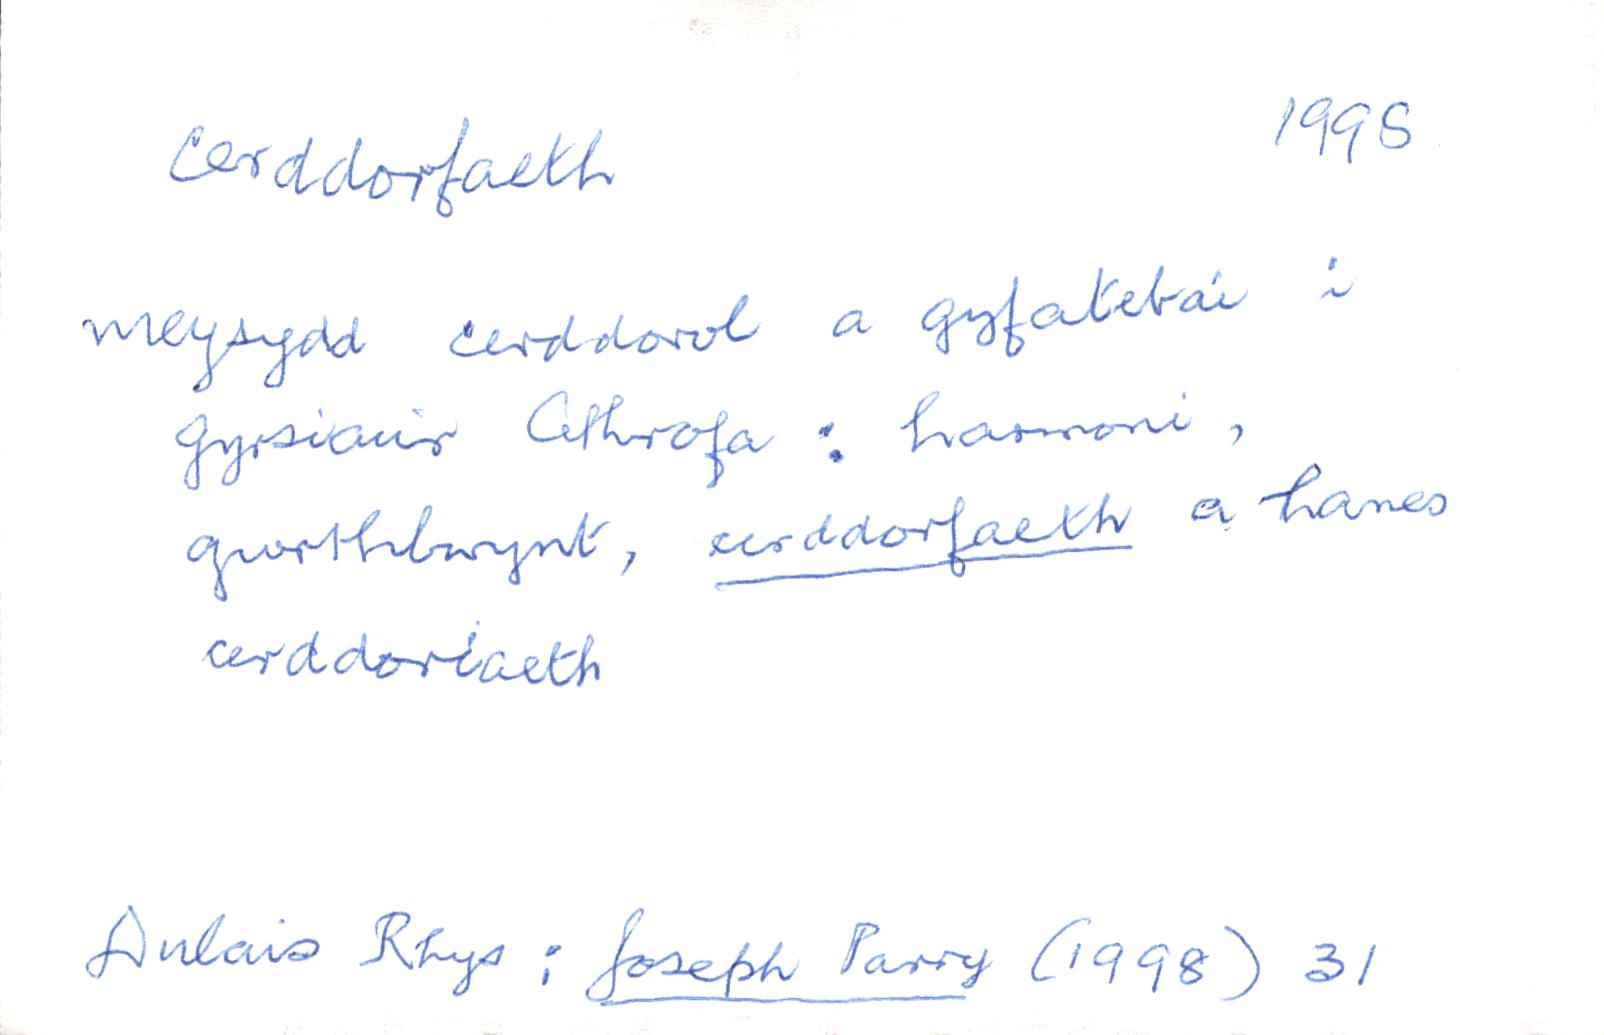 Cerddorfaeth
1998
meysydd cerddorol a gyfatebai i
gyrsiau'r Athrofa : harmoni,
gwrthbwynt, cerddorfaeth a hanes
cerddoriaeth
Dulais Rhys : Joseph Parry (1998) 31